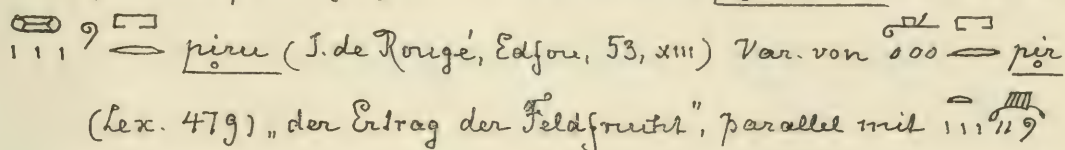 piru (J. de Rougé, Edfou, 53, XIII) Var. von pir
(Lex. 479) „der Ertrag der Feldfrucht", parallel mit